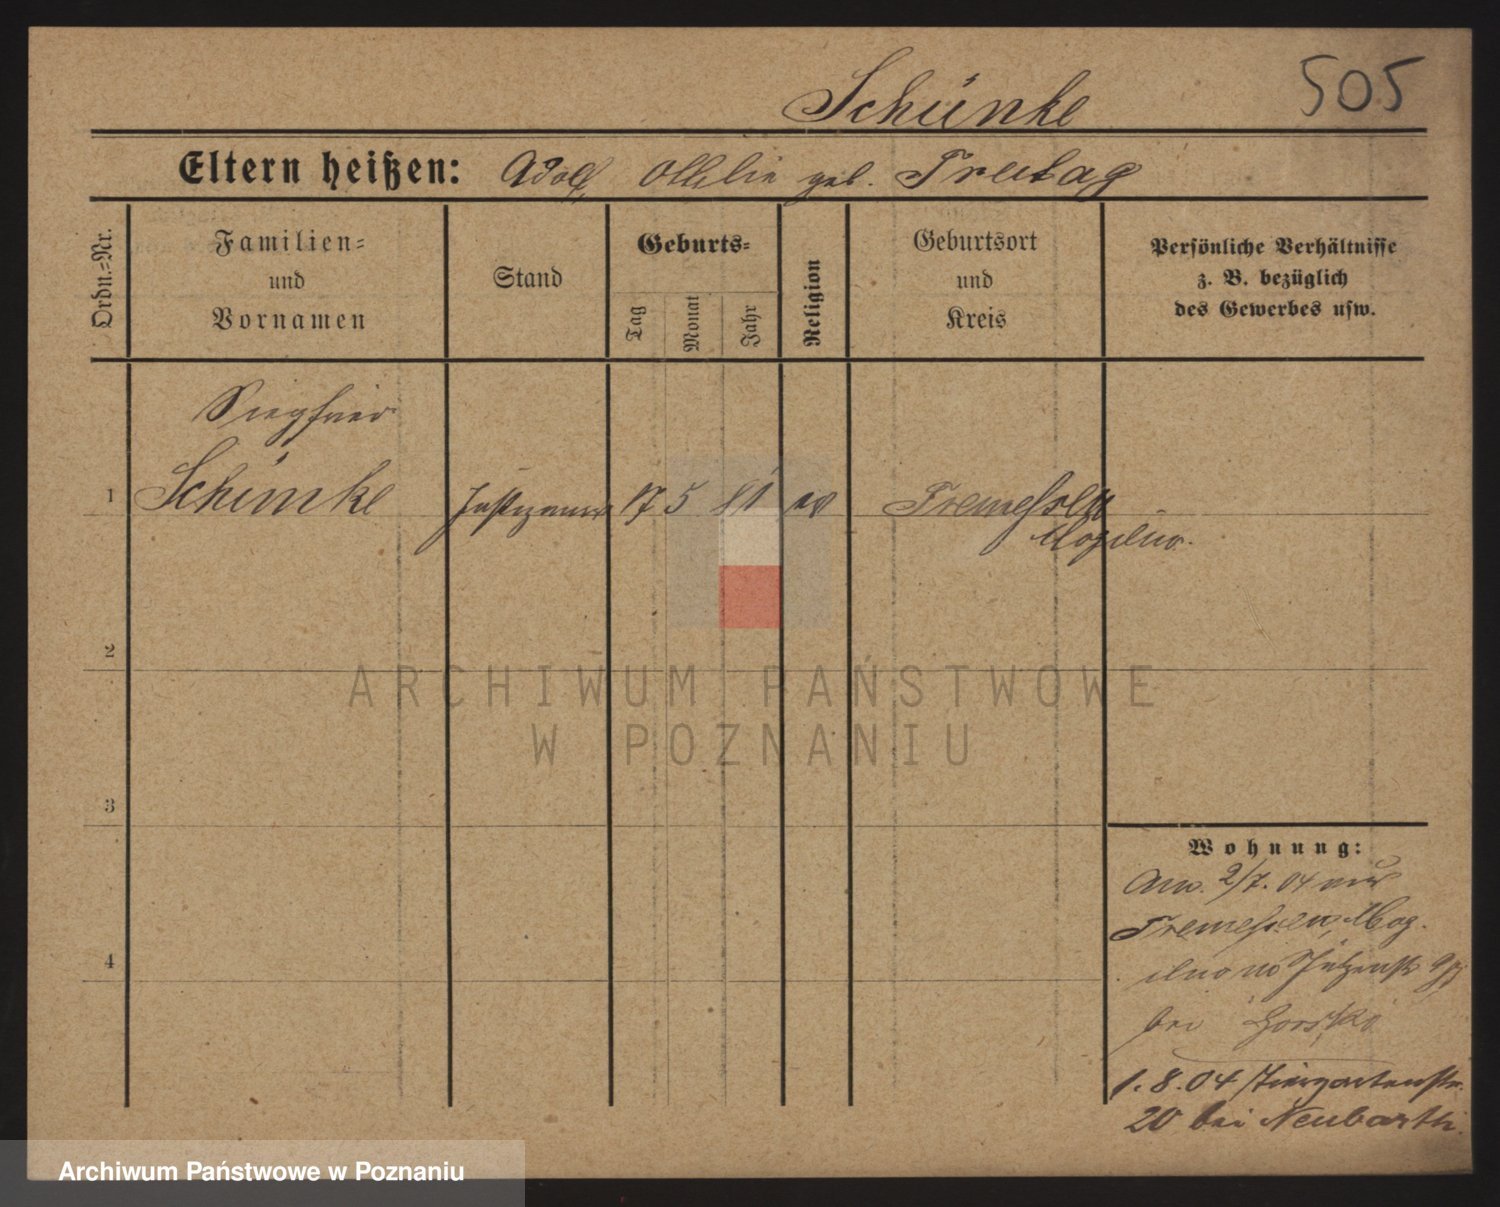 505
Schünke
Eltern heißen: Adolf, Ottilie geb. Freitag
Ordn.-Nr.
Familien-
und
Vornamen
Stand
Geburts-
Tag
Monat
Jahr
Religion
Geburtsort
und
Kreis
Persönliche Verhältnisse
z. B. bezüglich
des Gewerbes usw.
Siegfried
1 Schünke 17 5 81 ev Tremessen
Mogilno.
2
3
4
ARCHIWUM PAŃSTWOWE
W POZNANIU
Wohnung:
2/7. 04
Tremessen, Mog.
ilno
bei Gorski
1. 8. 04 Tiergartenstr.
20 bei Neubarth.
Archiwum Państwowe w Poznaniu